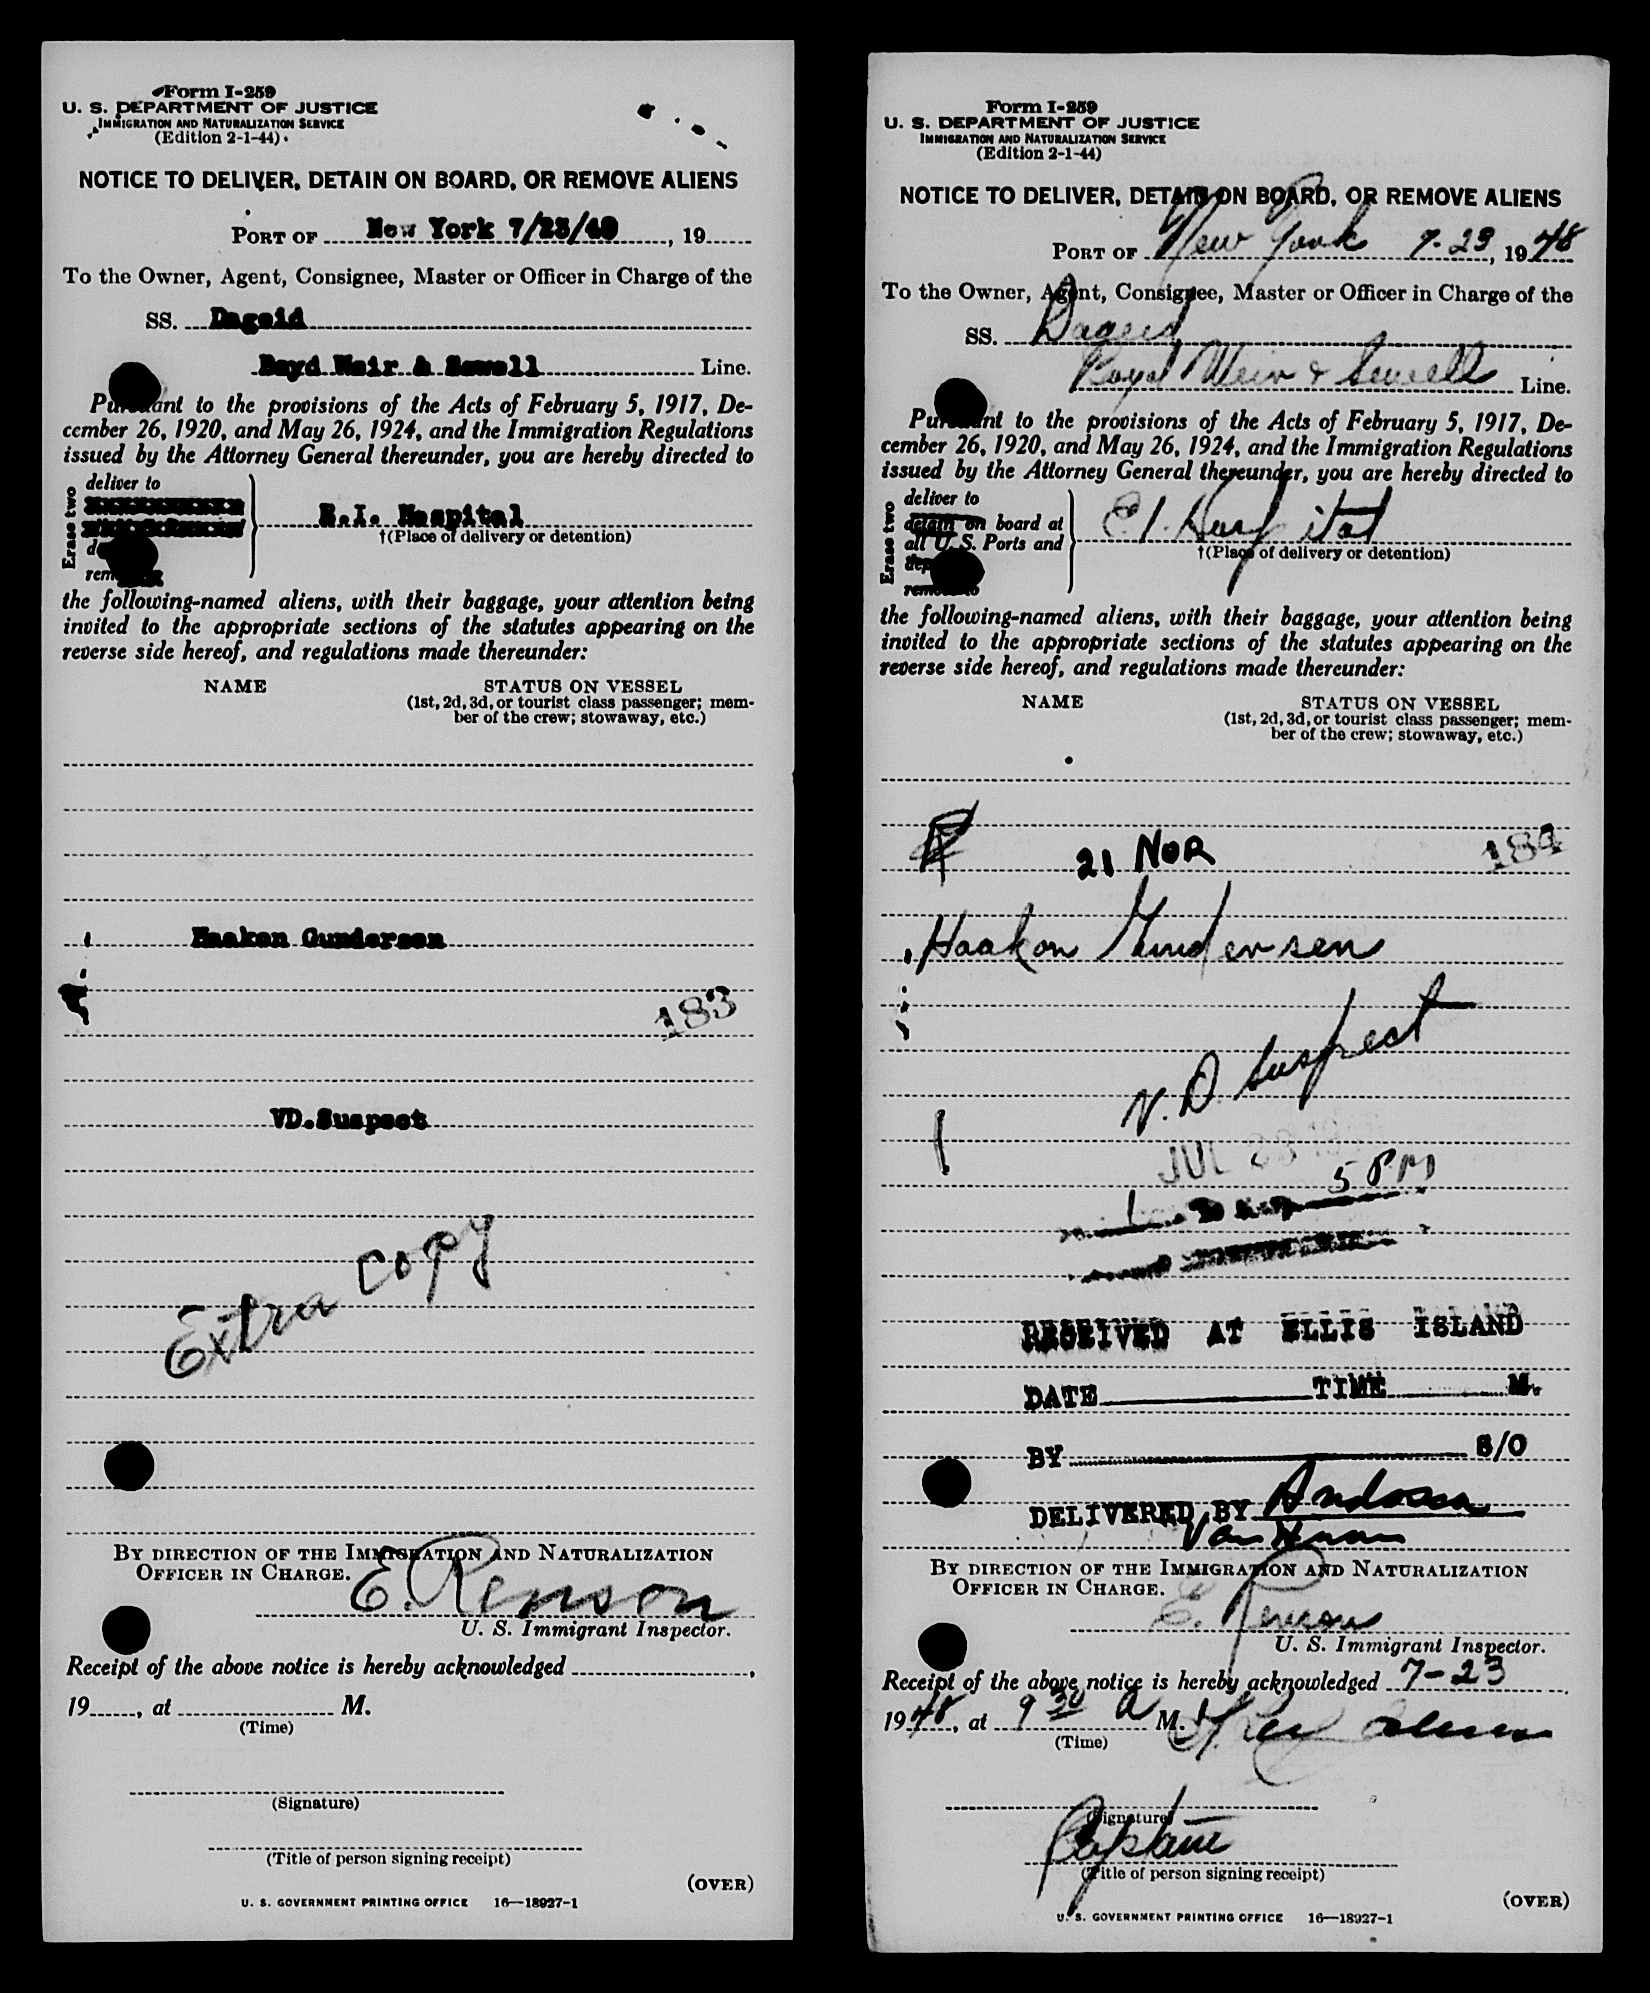 Form I-259
U. S. DEPARTMENT OF JUSTICE
IMMIGRATION AND NATURALIZATION SERVICE
(Edition 2-1-44)
NOTICE TO DELIVER, DETAIN ON BOARD, OR REMOVE ALIENS
PORT OF New York 7/23/48, 19
To the Owner, Agent, Consignee, Master or Officer in Charge of the
SS. Dageid
Boyd Weir & Sewell Line.
Pursuant to the provisions of the Acts of February 5, 1917, De-
cember 26, 1920, and May 26, 1924, and the Immigration Regulations
issued by the Attorney General thereunder, you are hereby directed to
Erase two
deliver to
E.I. Hospital
†(Place of delivery or detention)
the following-named aliens, with their baggage, your attention being
invited to the appropriate sections of the statutes appearing on the
reverse side hereof, and regulations made thereunder:
NAME STATUS ON VESSEL
(1st, 2d, 3d, or tourist class passenger; mem-
ber of the crew; stowaway, etc.)
Haakon Gundersen
183
VD.Suspect
Extra copy
BY DIRECTION OF THE IMMIGRATION AND NATURALIZATION
OFFICER IN CHARGE.
E. Renson
U. S. Immigrant Inspector.
Receipt of the above notice is hereby acknowledged ,
19 , at M.
(Time)
(Signature)
(Title of person signing receipt)
(OVER)
U. S. GOVERNMENT PRINTING OFFICE 16—18927-1
Form I-259
U. S. DEPARTMENT OF JUSTICE
IMMIGRATION AND NATURALIZATION SERVICE
(Edition 2-1-44)
NOTICE TO DELIVER, DETAIN ON BOARD, OR REMOVE ALIENS
PORT OF New York 7-23, 1948
To the Owner, Agent, Consignee, Master or Officer in Charge of the
SS. Dageid
Boyd Weir & Sewell Line.
Pursuant to the provisions of the Acts of February 5, 1917, De-
cember 26, 1920, and May 26, 1924, and the Immigration Regulations
issued by the Attorney General thereunder, you are hereby directed to
Erase two
deliver to
detain on board at
all U. S. Ports and
remove to
E I. Hospital
†(Place of delivery or detention)
the following-named aliens, with their baggage, your attention being
invited to the appropriate sections of the statutes appearing on the
reverse side hereof, and regulations made thereunder:
NAME STATUS ON VESSEL
(1st, 2d, 3d, or tourist class passenger; mem-
ber of the crew; stowaway, etc.)
21 NOR 184
Haakon Gundersen
V. D Suspect
JUL 23 19
5 PM
RECEIVED AT ELLIS ISLAND
DATE TIME M.
BY S/O
DELIVERED BY
BY DIRECTION OF THE IMMIGRATION AND NATURALIZATION
OFFICER IN CHARGE.
E. Renson
U. S. Immigrant Inspector.
Receipt of the above notice is hereby acknowledged 7-23 ,
1948, at 9 30 A M.
(Time)
(Signature)
Captain
(Title of person signing receipt)
(OVER)
U. S. GOVERNMENT PRINTING OFFICE 16—18927-1